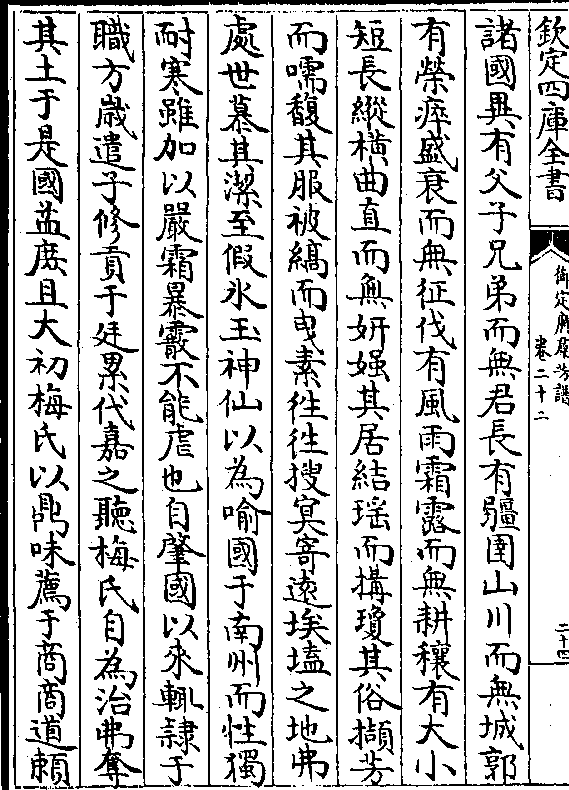 欽定四庫全書
御定廣羣芳譜
卷二十二
二十四
諸國異有父子兄弟而無君長有疆圉山川而無城郭
有榮瘁盛衰而無征伐有風雨霜露而無耕穰有大小
短長縱橫曲直而無妍媸其居結瑤而搆瓊其俗擷芳
而嚅馥其服被縞而曳素徃徃搜冥寄遠埃壒之地弗
處世慕其潔至假氷玉神仙以為喻國于南州而性獨
耐寒雖加以嚴霜暴霰不能虐也自肇國以來輒隷于
職方嵗遣子修貢于廷累代嘉之聽梅氏自為治弗奪
其土于是國益廣且大初梅氏以鼎味薦于商商道賴